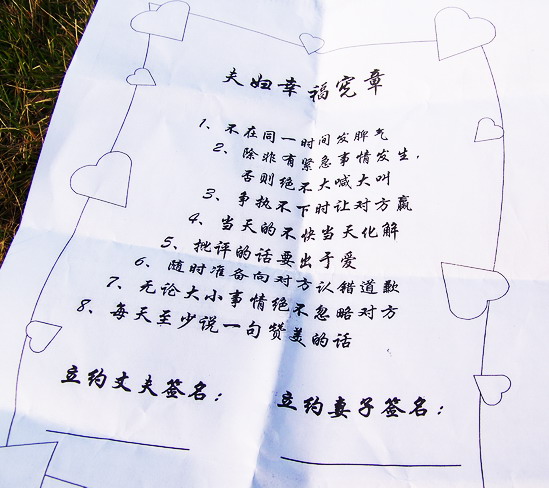 夫妇幸福宪章
1、不在同一时间发脾气
2、除非有紧急事情发生,
否则绝不大喊大叫
3、争执不下时让对方赢
4、当天的不快当天化解
5、批评的话要出于爱
6、随时准备向对方认错道歉
7、无论大小事情绝不忽略对方
8、每天至少说一句赞美的话
立约丈夫签名: 立约妻子签名: